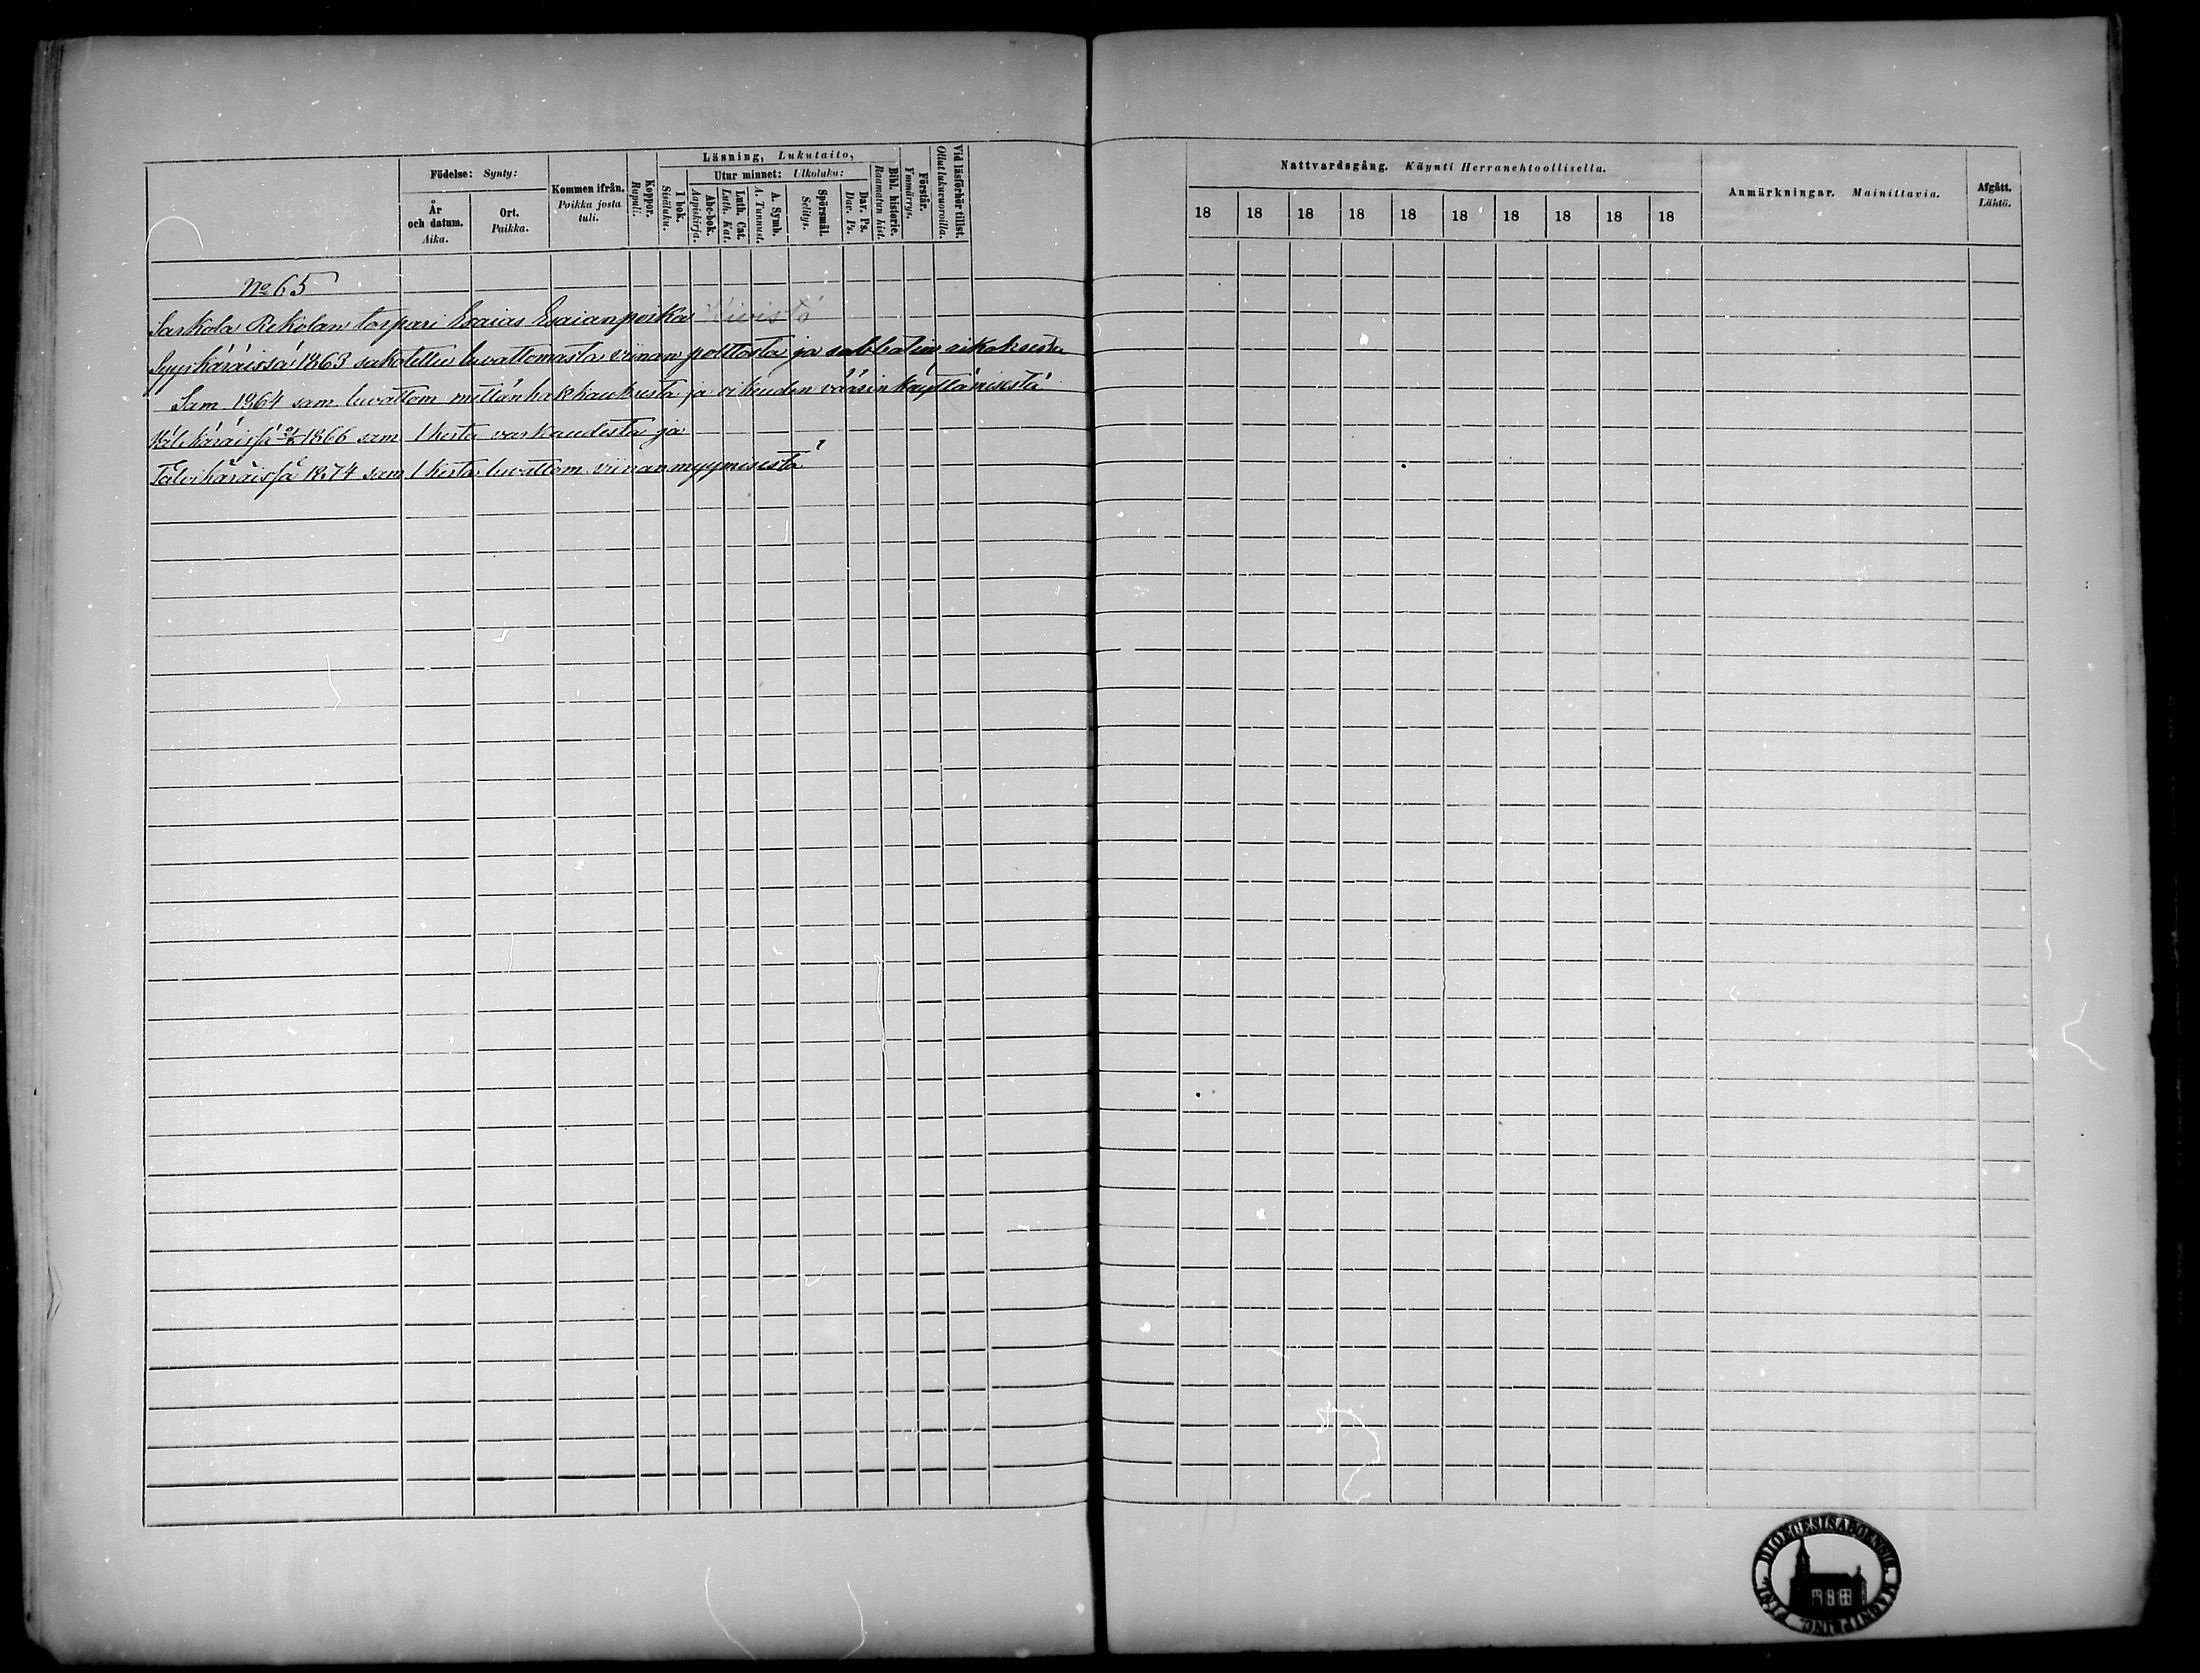 Läsning, Lukutaito,
Utur minnet: Ulkoluku:
Födelse: Synty:
År och datum. Aika.
Ort. Paikka.
Kommen ifrån. Poikka josta tuli.
Koppor. Rupuli.
I bok. Sisäluku.
Abc-bok. Aapiskirja.
Luth. Cat. Luth. Kat.
A. Symb. A. Tunnust.
Spörsmål. Selitys.
Dav. Ps. Dav. Ps.
Bibl. historie. Raamatun hist.
Förstår. Ymmärrys.
Vid läsförhör tillst. Ollut lukuvuoroilla.
Nattvardsgång. Käynti Herranehtoollisella.
18 18 18 18 18 18 18 18 18 18
Anmärkningar. Mainittavia.
Afgått. Lähtö.
No 65
Sarkola Rekolan torpari Esaias Esaianpoika Kivistö
Syyskäräissä 1863 sakotettu luvattomasta viinan poltosta ja sabbatin rikoksesta
Sam 1864 sam luvattom metsänhakkauksesta ja oikeuden väärinkäyttämisestä
1866 sam 1 kerta varkaudesta ja
Talvikäräissä 1874 sam 1 kerta luvattom viinanmyymisestä
DIOECESIS ABOENSIS
MAGNI PRINC. FINL.